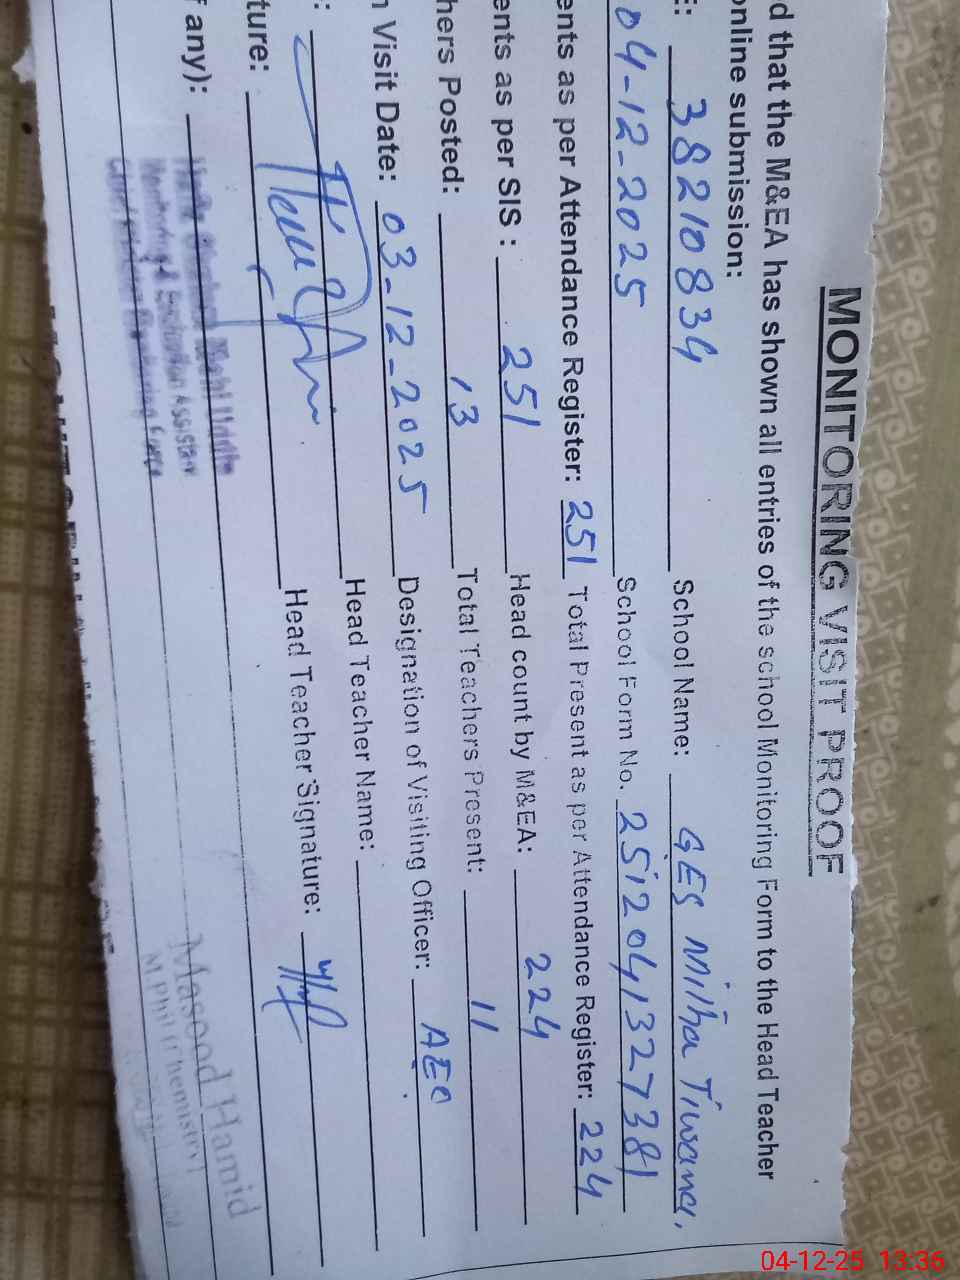 MONITORING VISIT PROOF
d that the M&EA has shown all entries of the school Monitoring Form to the Head Teacher
online submission:
E: 38210834 School Name: GES Mitha Tiwana,
04-12-2025 School Form No. 2512041327381
ents as per Attendance Register: 251 Total Present as per Attendance Register: 224
ents as per SIS : 251 Head count by M&EA: 224
hers Posted: 13 Total Teachers Present: 11
n Visit Date: 03-12-2025 Designation of Visiting Officer: AEO
: Head Teacher Name:
ture: Head Teacher Signature:
f any):
Monitoring & Evaluation Assistant
Masood Hamid
M.Phil (Chemistry)
04-12-25 13:36